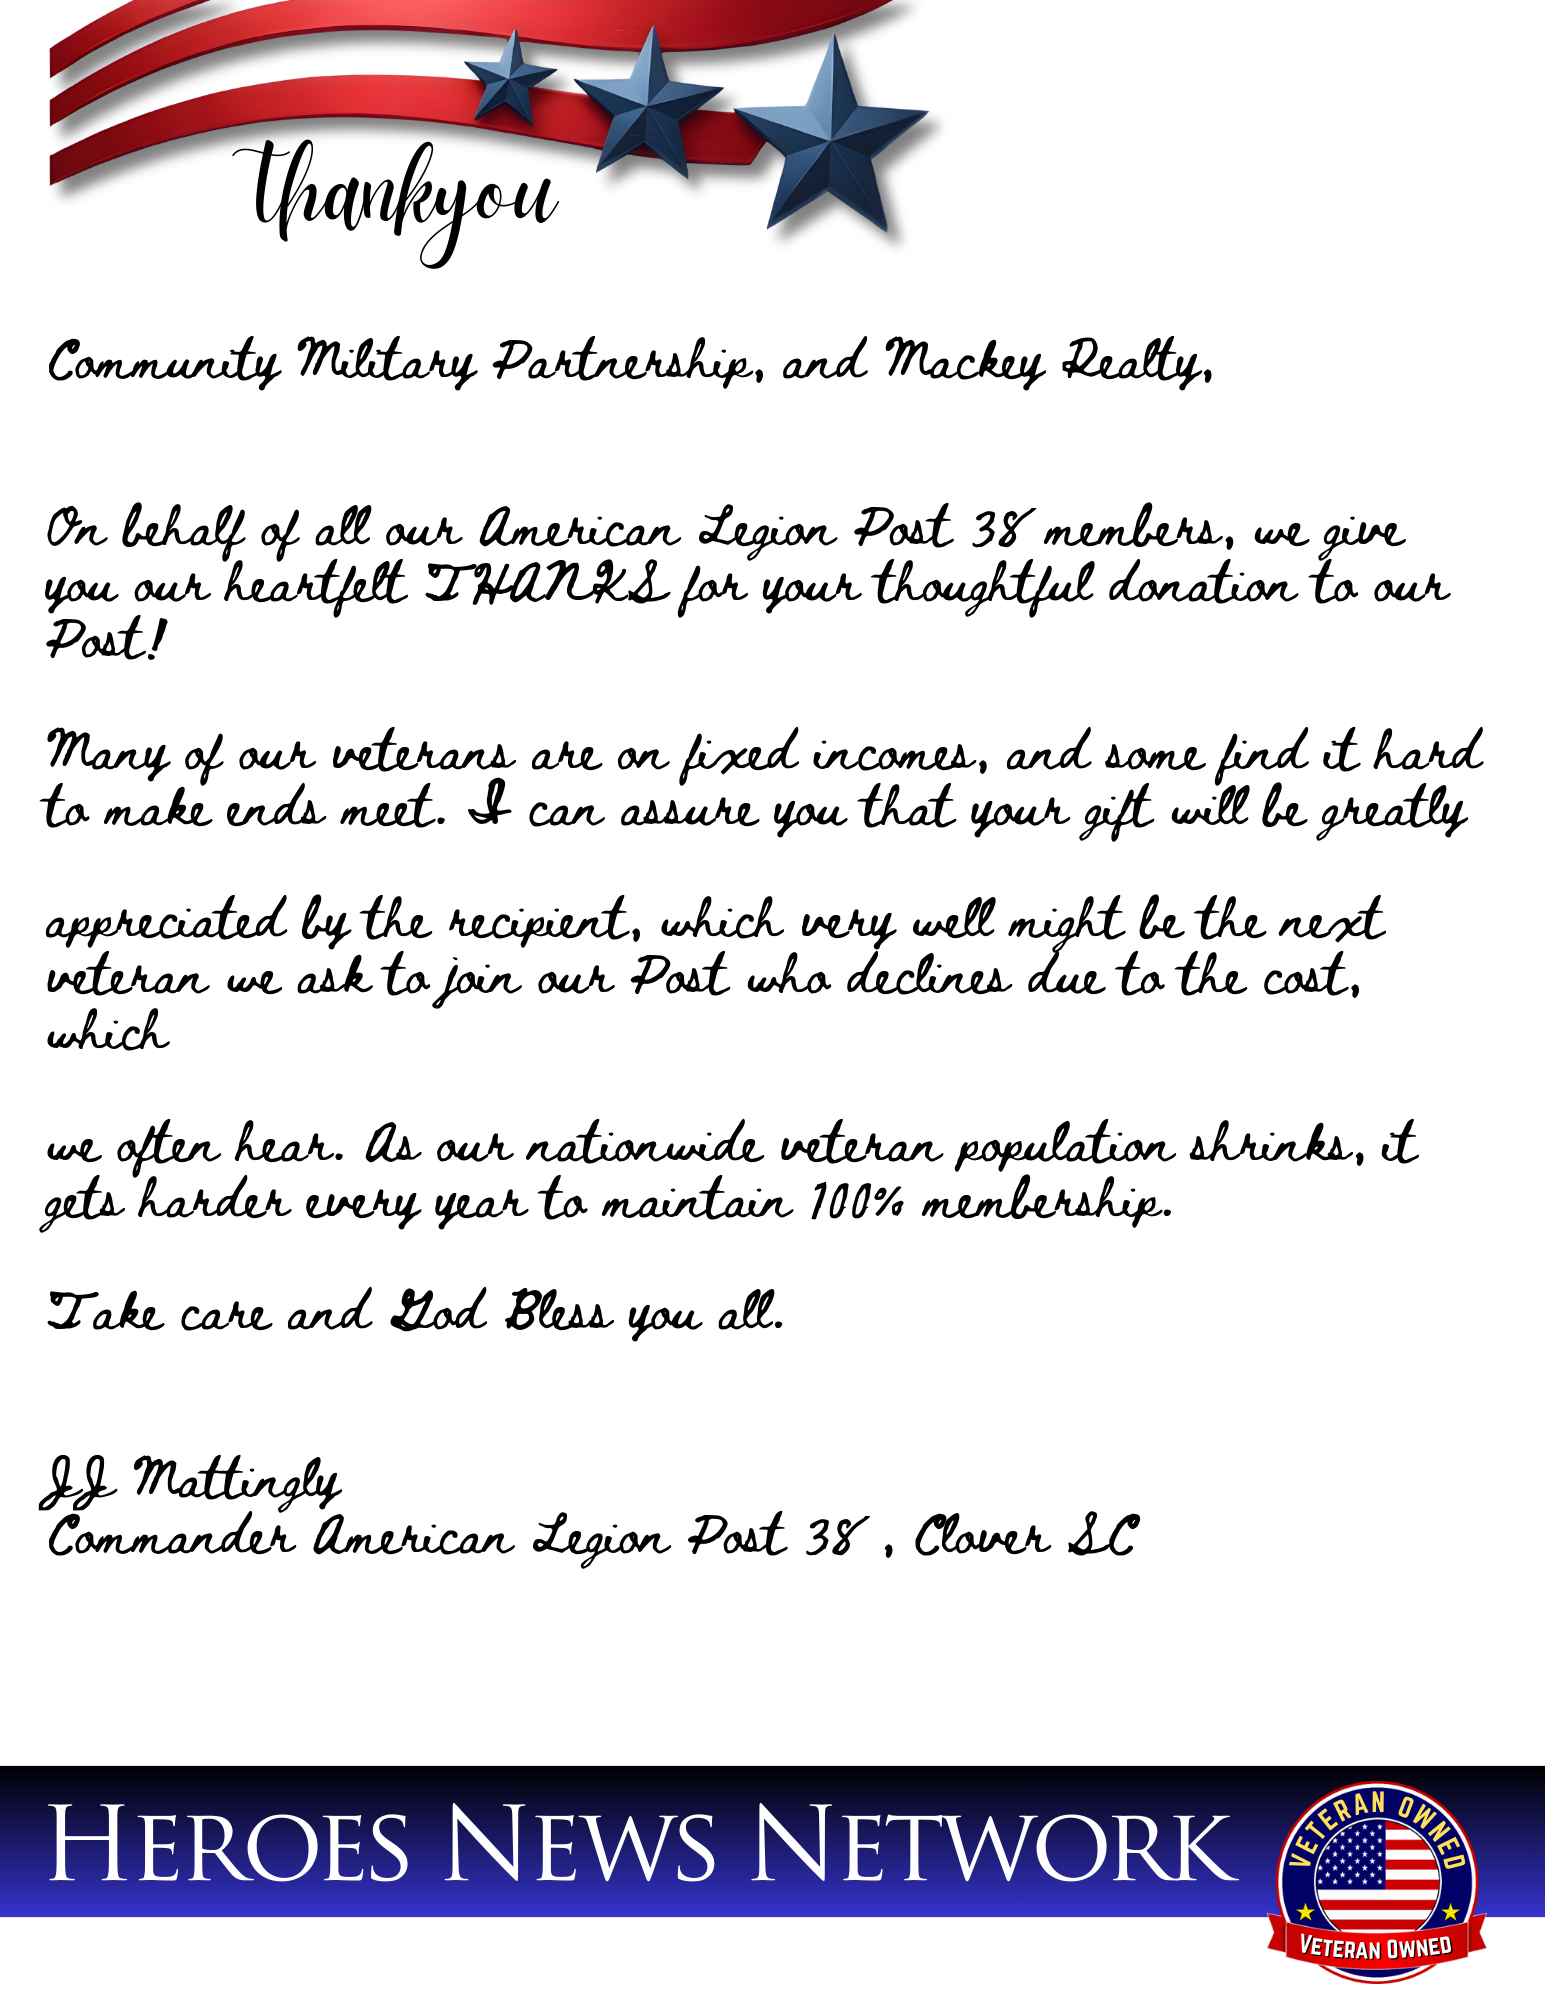 thankyou
Community Military Partnership, and Mackey Realty,
On behalf of all our American Legion Post 38 members, we give
you our heartfelt THANKS for your thoughtful donation to our
Post!
Many of our veterans are on fixed incomes, and some find it hard
to make ends meet. I can assure you that your gift will be greatly
appreciated by the recipient, which very well might be the next
veteran we ask to join our Post who declines due to the cost,
which
we often hear. As our nationwide veteran population shrinks, it
gets harder every year to maintain 100% membership.
Take care and God Bless you all.
JJ Mattingly
Commander American Legion Post 38 , Clover SC
HEROES NEWS NETWORK
VETERAN OWNED
VETERAN OWNED